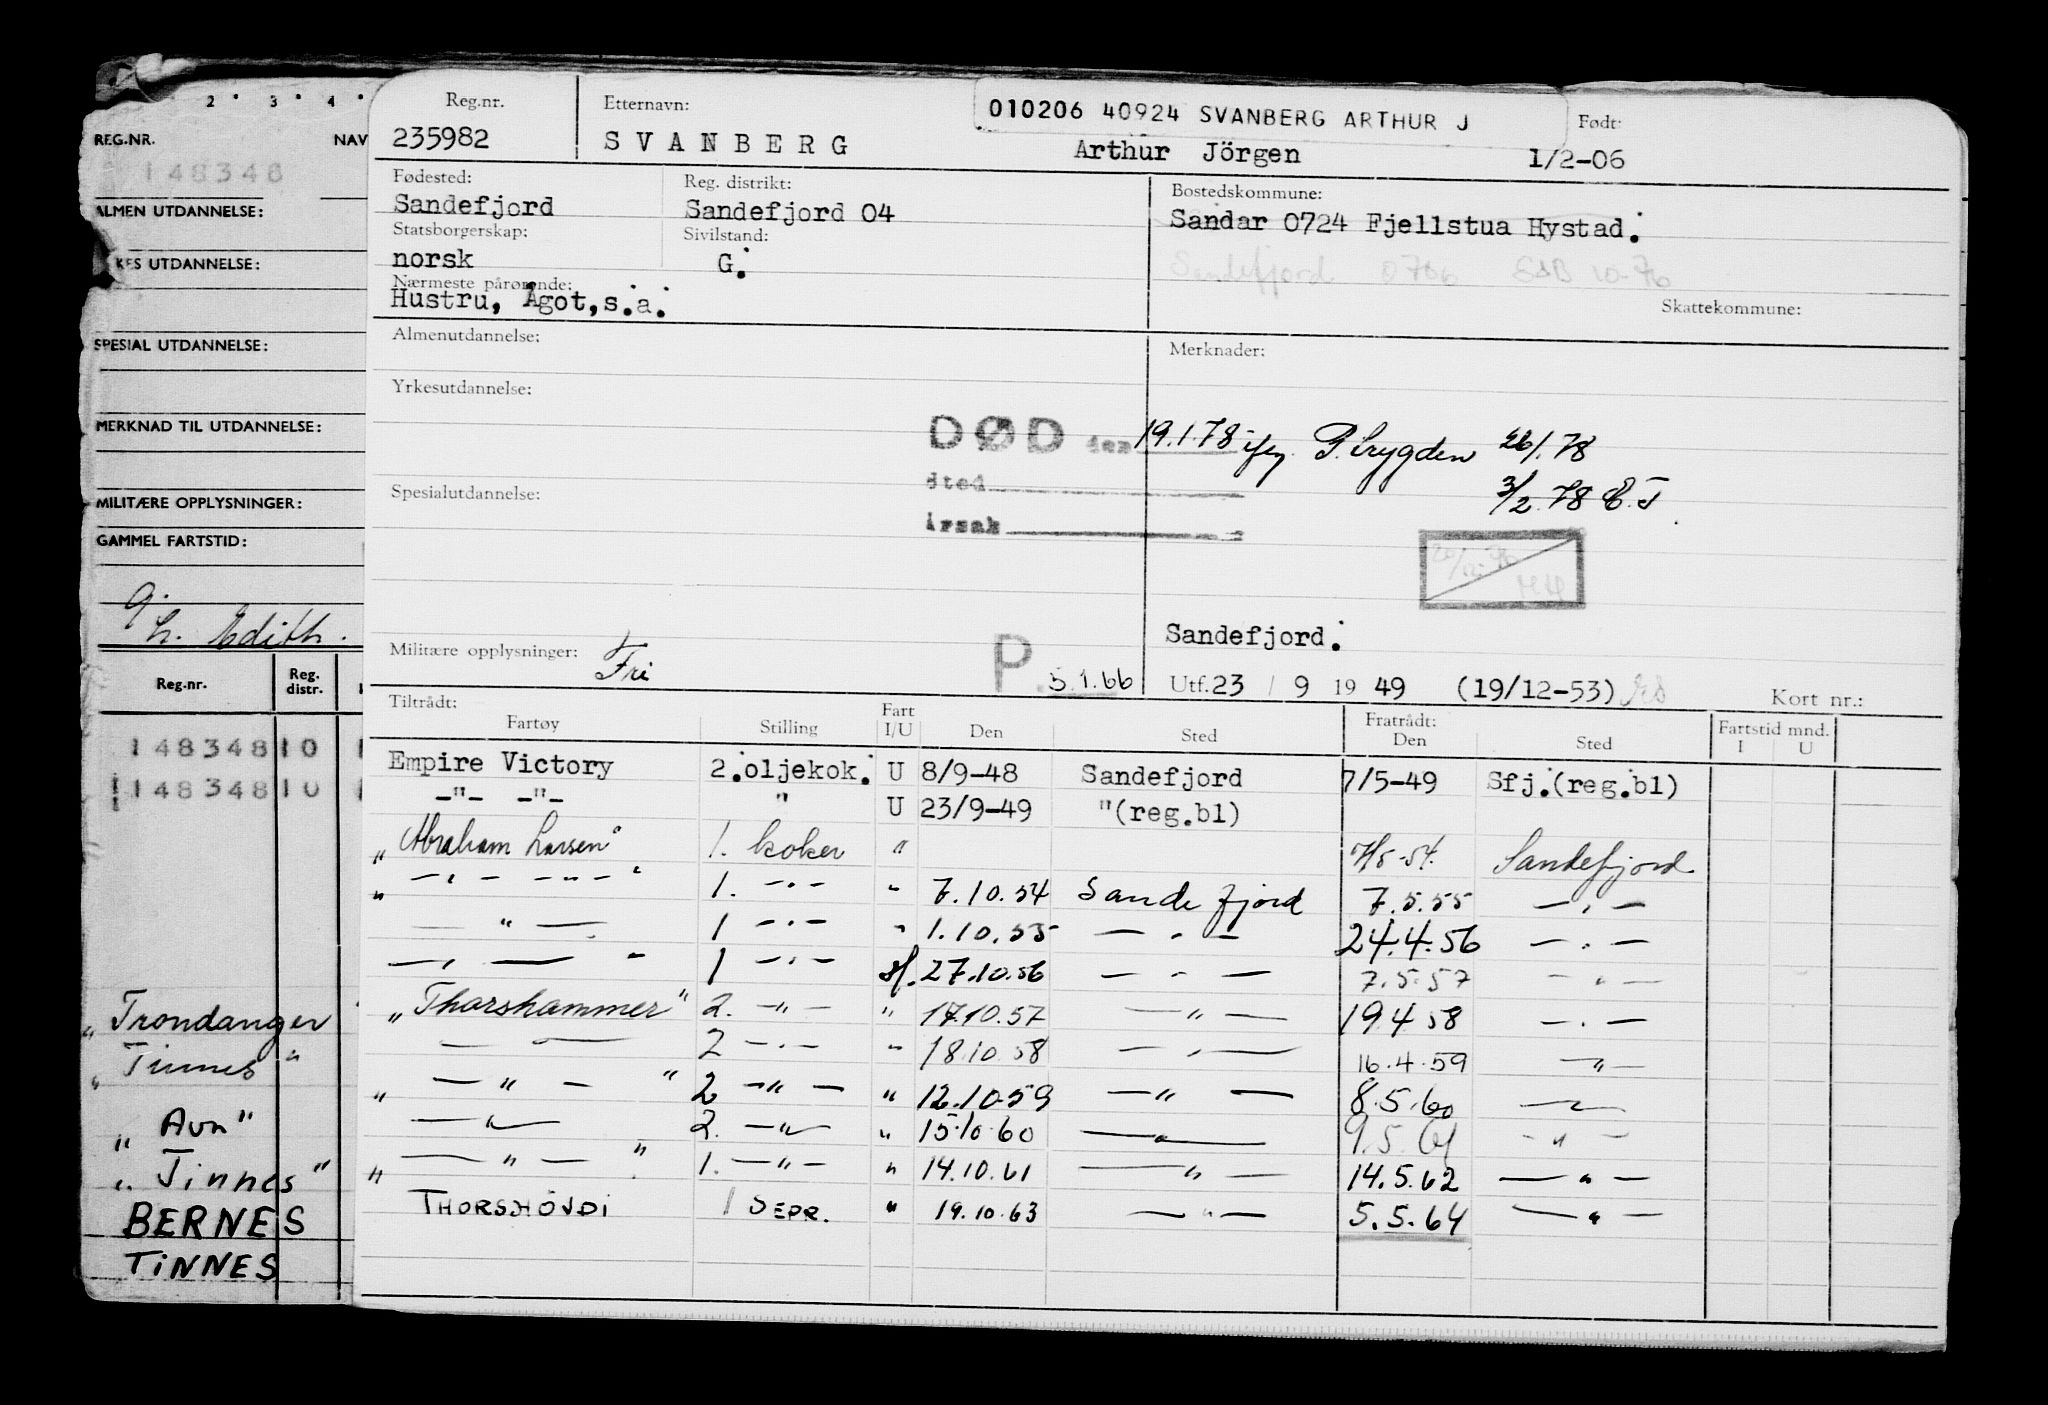 2 · 3 · 4 ·
REG.NR. NAV
148348
ALMEN UTDANNELSE:
KES UTDANNELSE:
SPESIAL UTDANNELSE:
MERKNAD TIL UTDANNELSE:
MILITÆRE OPPLYSNINGER:
GAMMEL FARTSTID:
g.
h. Edith.
Reg.nr. Reg. distr.
148348 10
148348 10
"Trondanger
"Tinnes"
"Avn"
"Tinnes"
BERNES
TINNES
010206 40924 SVANBERG ARTHUR J
Reg.nr. Etternavn: Født:
235982 SVANBERG Arthur Jörgen 1/2-06
Fødested: Reg. distrikt: Bostedskommune:
Sandefjord Sandefjord 04 Sandar 0724 Fjellstua Hystad.
Statsborgerskap: Sivilstand:
norsk G. Sandefjord 0706 10-76
Nærmeste pårørende:
Hustru, Ågot,s.a. Skattekommune:
Almenutdannelse: Merknader:
Yrkesutdannelse:
DØD den 19.1.78 26/1.78
sted 3/2.78 E.T.
Spesialutdannelse:
årsak
Sandefjord.
Militære opplysninger: Fri P 5.1.66 Utf. 23 / 9 19 49 (19/12-53) Kort nr.:
Tiltrådt: Fratrådt: Fartstid mnd.
Fartøy Stilling Fart I/U Den Sted Den Sted I U
Empire Victory 2.oljekok. U 8/9-48 Sandefjord 7/5-49 Sfj.(reg.bl)
-"- -"- " U 23/9-49 "(reg.bl)
"Abraham Larsen" 1. koker " 7/5-54. Sandefjord
" -"- -"- " 1. -"- " 7.10.54 Sandefjord 7.5.55 -"-
-"- 1 -"- " 1.10.55 -"- 24.4.56 -"-
-"- " 1 -"- 27.10.56 -"- 7.5.57 -"-
"Thorshammer" 2. -"- " 17.10.57 -"- 19.4.58 -"-
-"- 2 -"- " 18.10.58 -"- 16.4.59 -"-
" -"- " 2 -"- " 12.10.59 -"- 8.5.60 -"-
-"- 2. -"- " 15.10.60 -"- 9.5.61 -"-
" -"- " 1. -"- " 14.10.61 -"- 14.5.62 -"-
THORSHÖVDI 1 SEPR. " 19.10.63 -"- 5.5.64 -"-